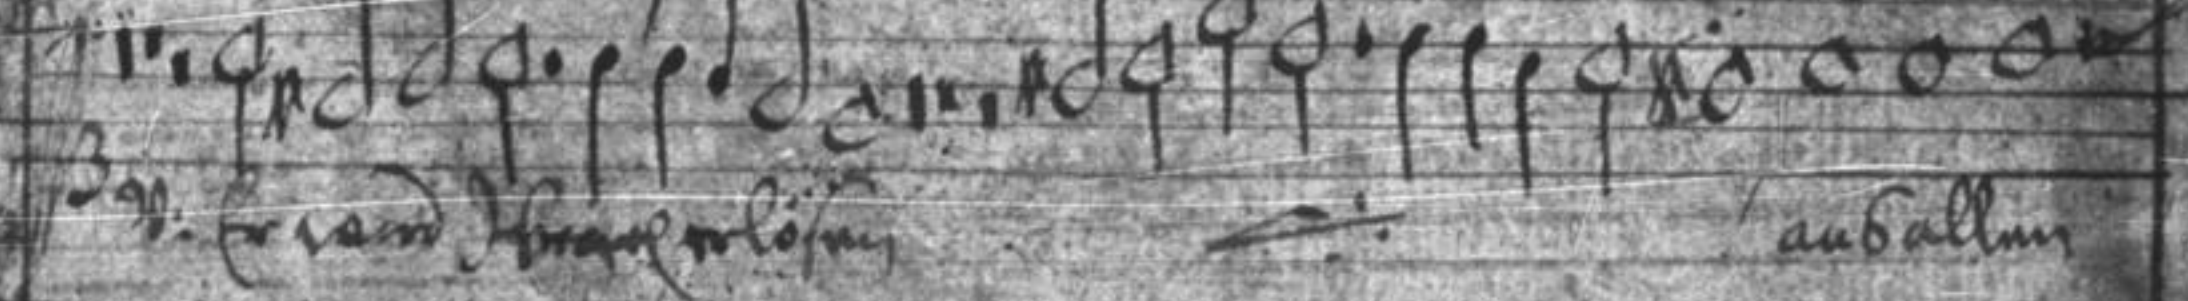 V. Er wird Israel erlösen außallen